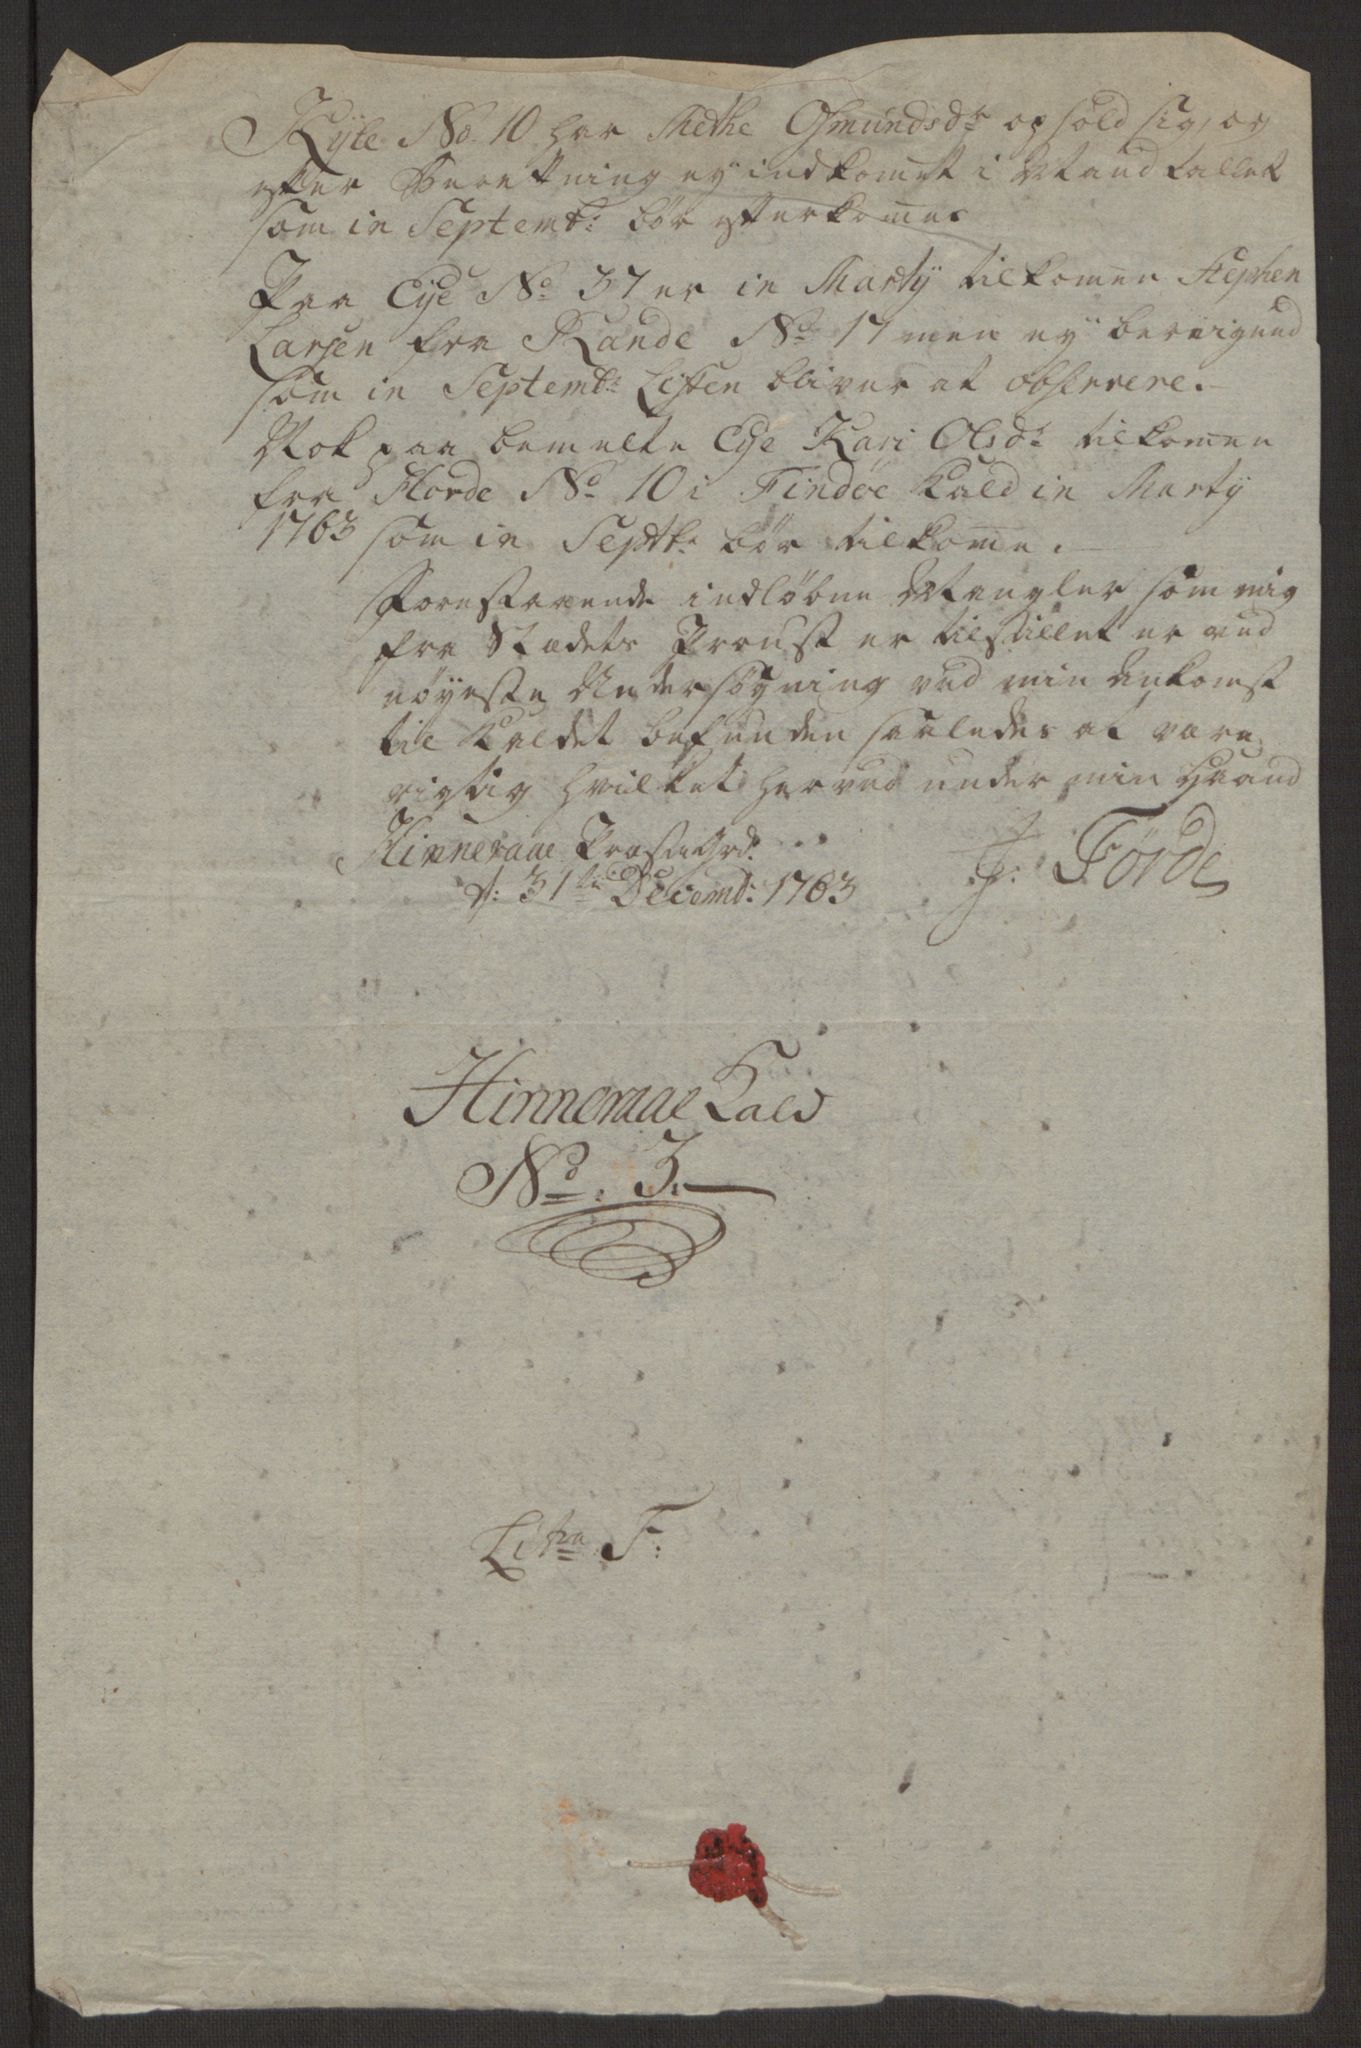 Kyte No. 10 har Methe Osmundsdr. opholdt sig, og
efter Berettning ey indkomet i Mandtallet
som in Septembr: bør efterkomes
Paa Eye No. 37 er in Martij tilkomen Stephen
Larsen fra Rande No. 17 men ey berigend
som in Septembr: Listen bliver at observere.
Nok paa bemelte Eye Kari Olsdr. tilkomen
fra Horde No. 10 i Findøe Kald in Martij
1763 som in Septbr. bør tilkome.
Forestaaende indløbne Mangler som mig
fra Stædets Proust er tilstillet er ved
nøyeste Undersøgning ved min Ankomst
til Kaldet befunden saaledes at være
rigtig hvilket herved under min Haand
Hinneraae Præstegrd.
d: 31te Decembr: 1763
J: Førde
Hinneraae Kald
No. 3.
Litra F: